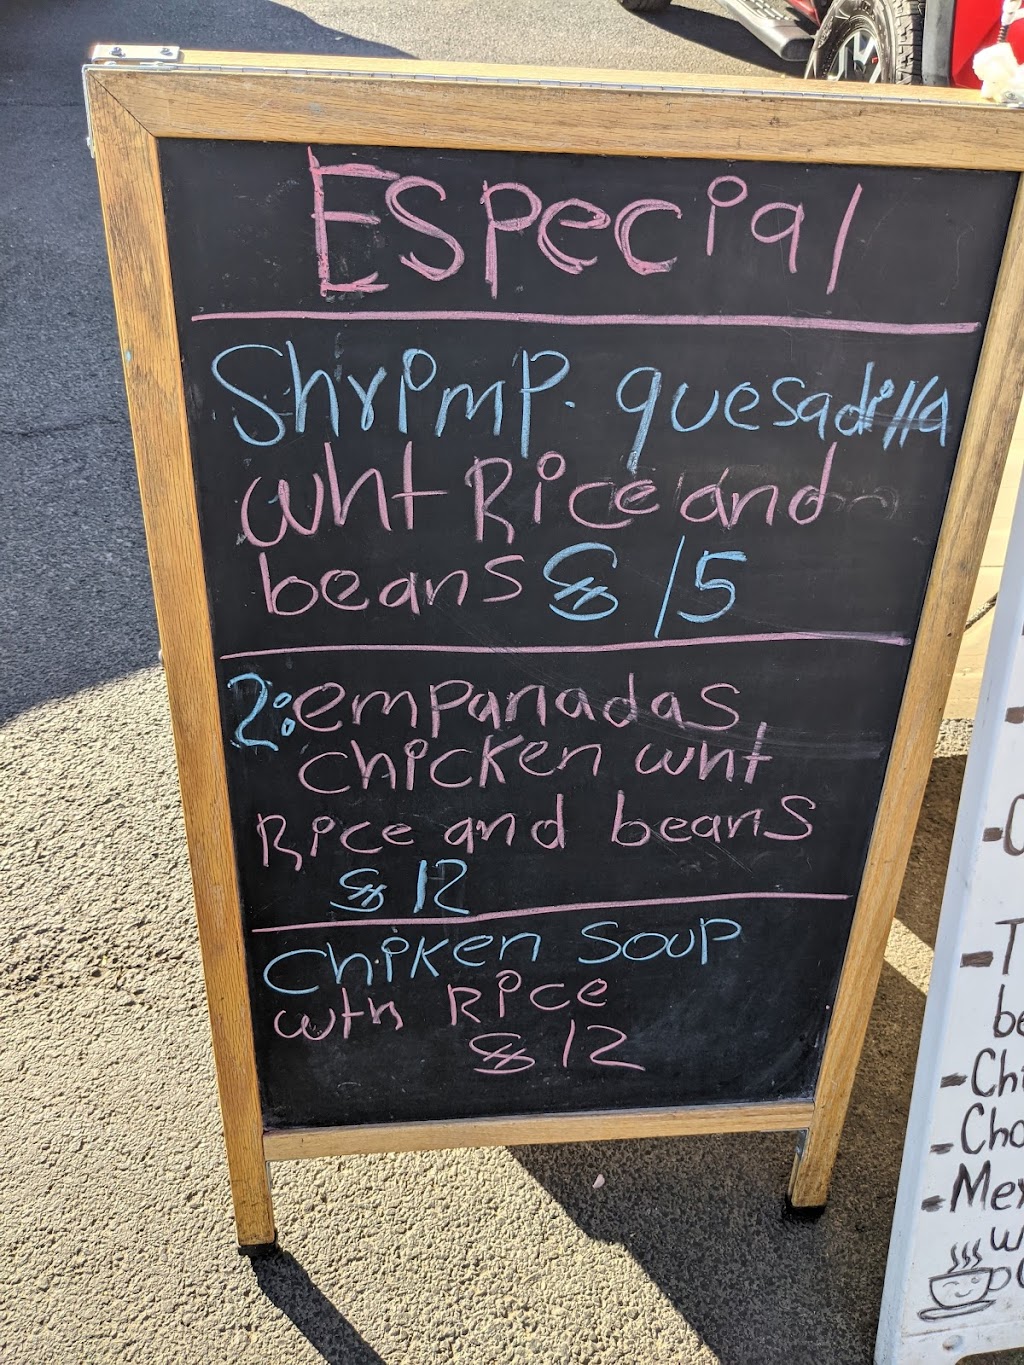 Especial
Shrimp. quesadilla
wht Rice and
beans $ 15
2: empanadas
chicken wht
Rice and beans
$ 12
Chiken Soup
wth Rice
$ 12
be